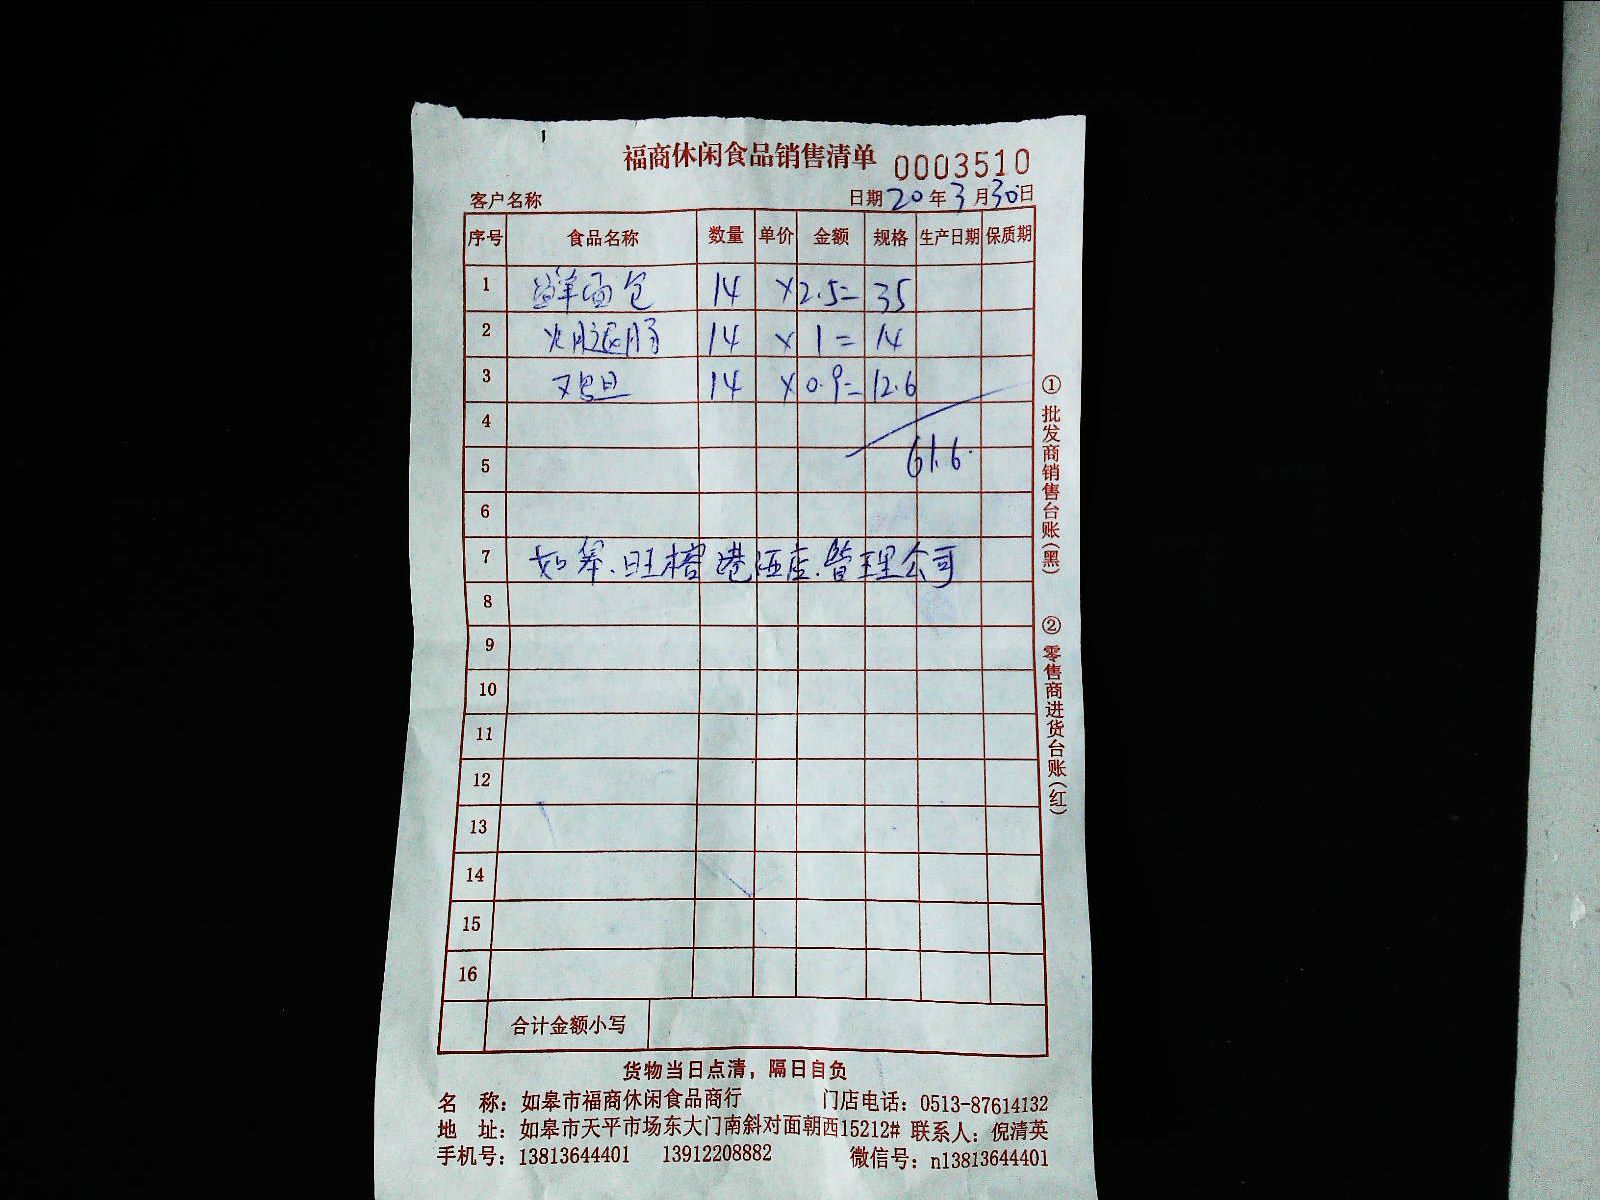 福商休闲食品销售清单 0003510
客户名称 日期20年3月30日
序号 食品名称 数量 单价 金额 规格 生产日期 保质期
1 鲜面包 14 ×2.5= 35
2 火腿 14 × 1 = 14
3 鸡旦 14 ×0.9= 12.6
4
5 61.6
6
7 如皋.旺榕港酒店.管理公司
8
9
10
11
12
13
14
15
16
合计金额小写
①批发商销售台账(黑)
②零售商进货台账(红)
货物当日点清，隔日自负
名 称：如皋市福商休闲食品商行 门店电话：0513-87614132
地 址：如皋市天平市场东大门南斜对面朝西15212# 联系人：倪清英
手机号：13813644401 13912208882 微信号：n13813644401